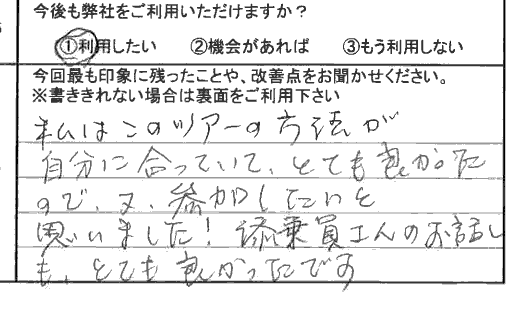 今後も弊社をご利用いただけますか？
①利用したい ②機会があれば ③もう利用しない
今回最も印象に残ったことや、改善点をお聞かせください。
※書ききれない場合は裏面をご利用下さい
私はこのツアーの方法が
自分に合っていて、とても良かった
ので、又、参加したいと
思いました！添乗員さんのお話し
も、とても良かったです